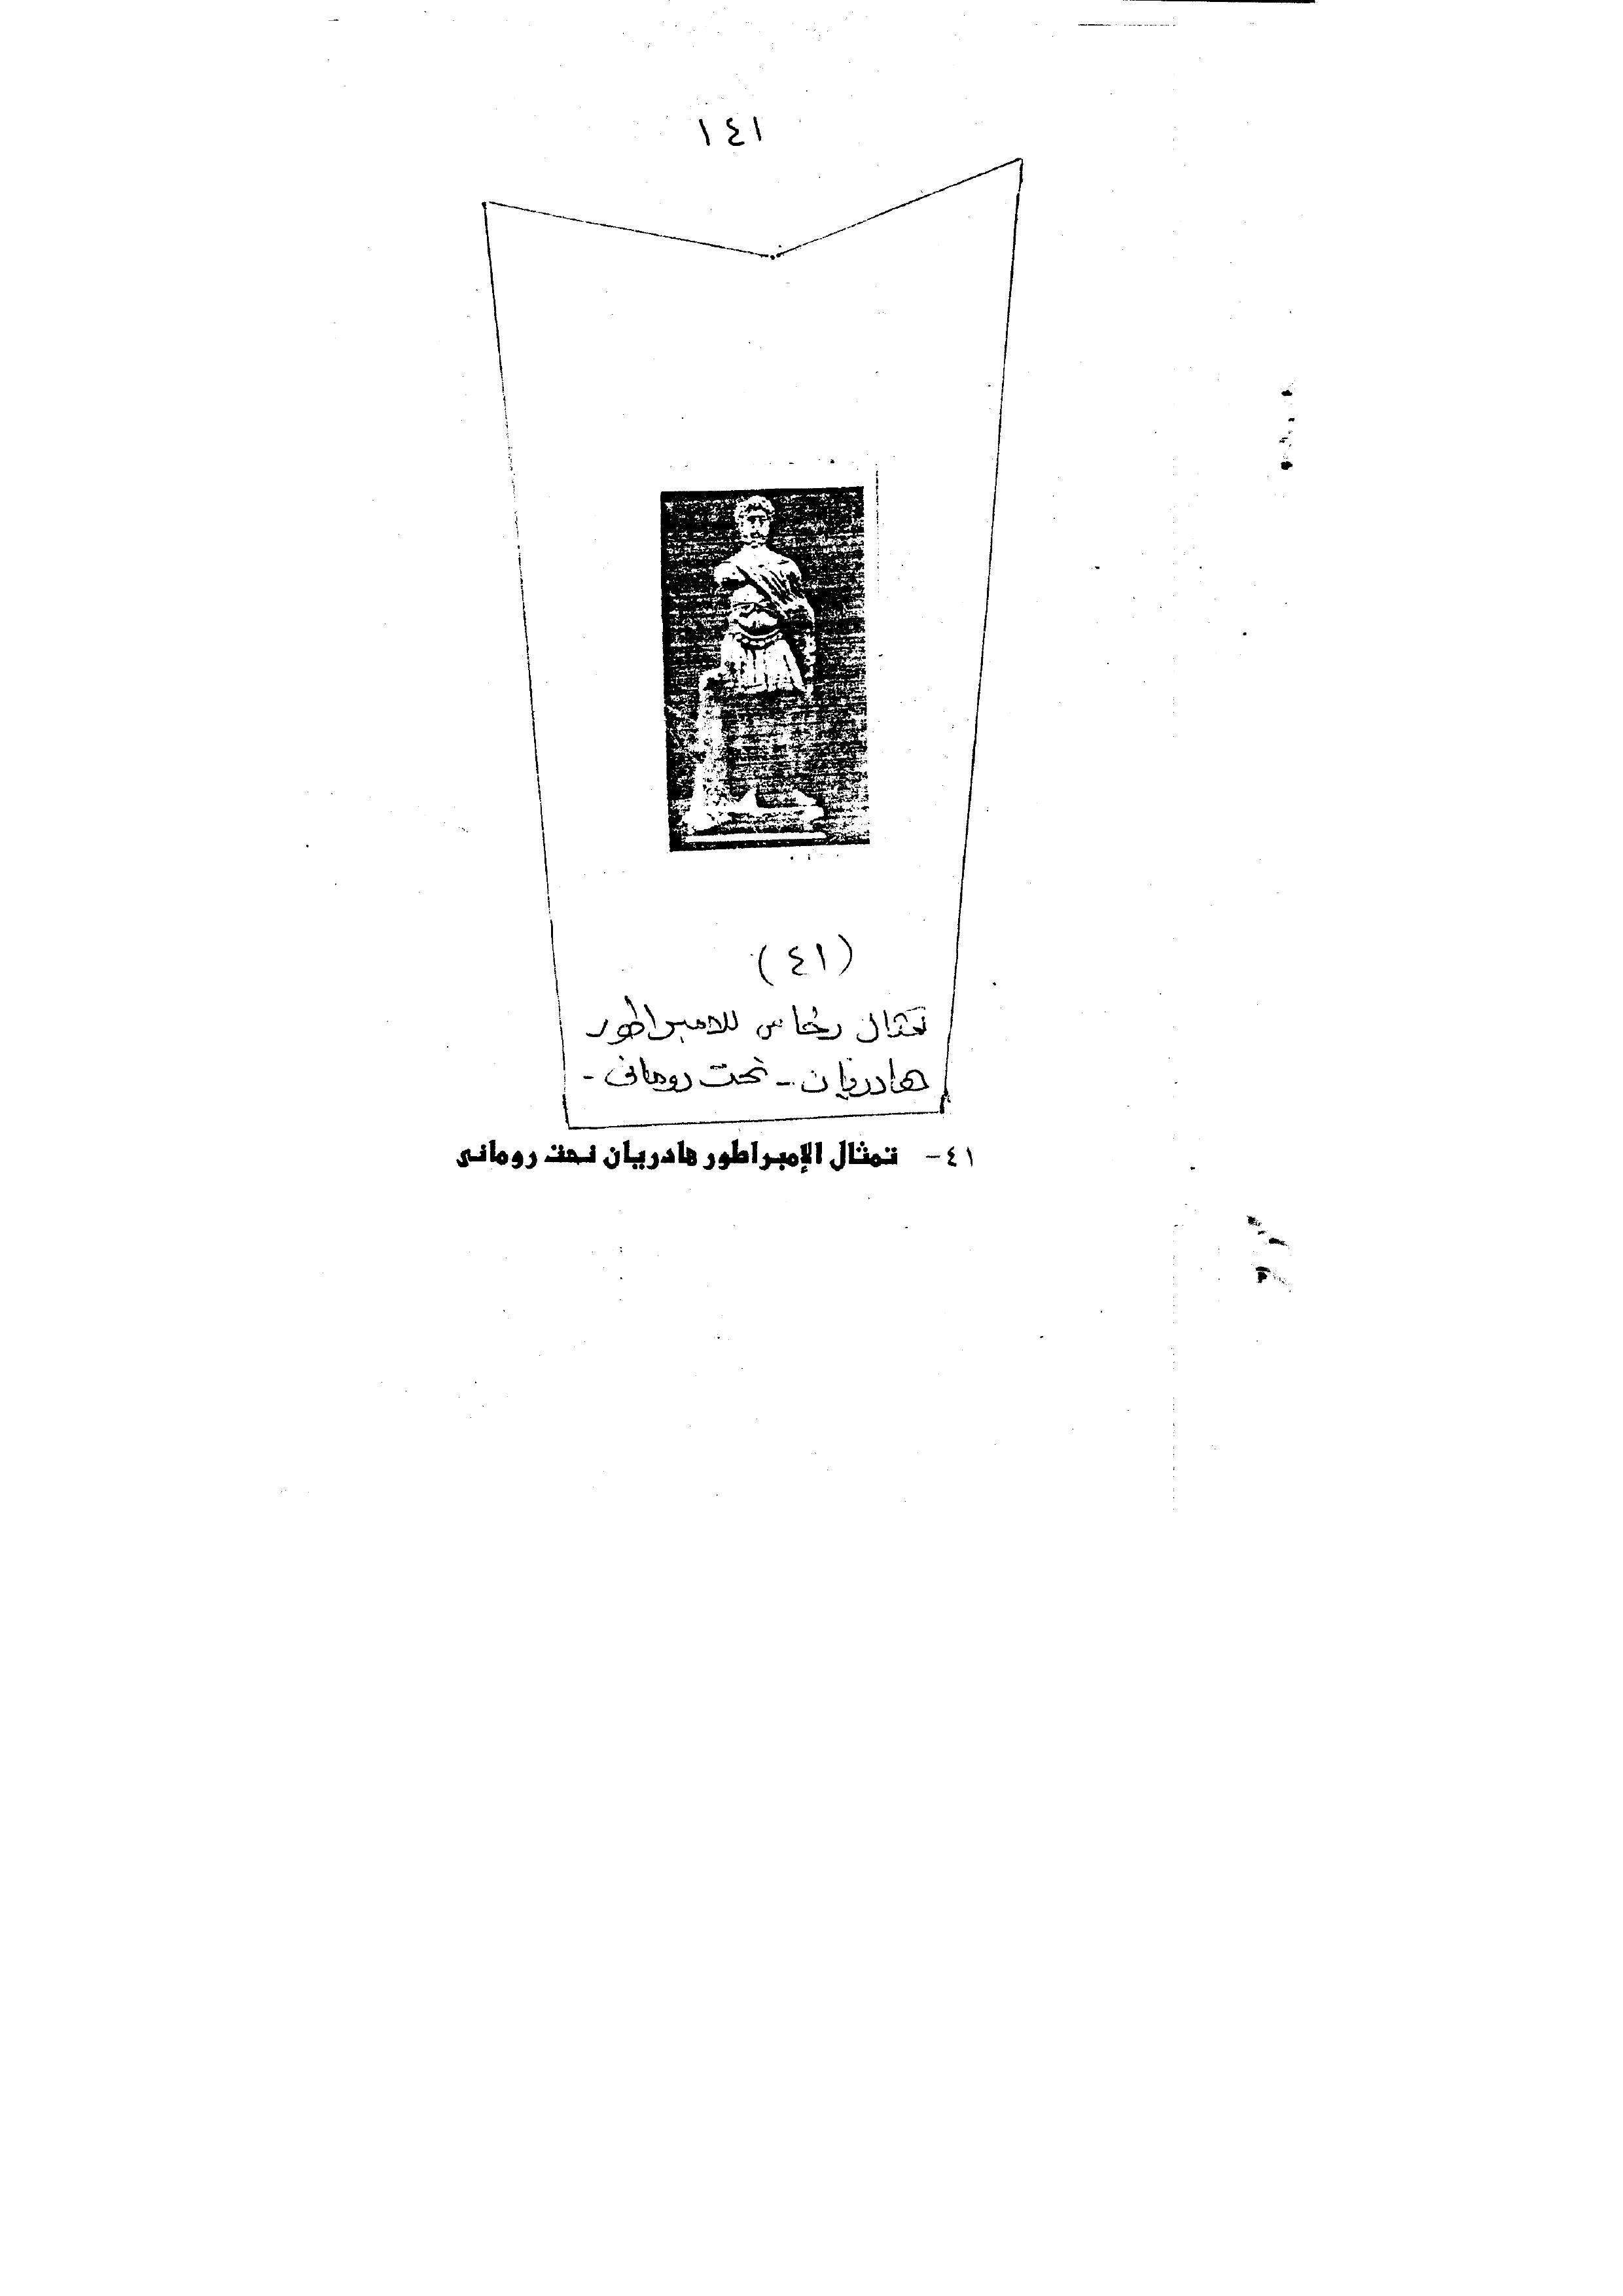 ١٤١
(٤١)
تمثال رخامى للامبراطور
هادريان - نحت رومانى -
٤١- تمثال الإمبراطور هادريان نحت رومانى